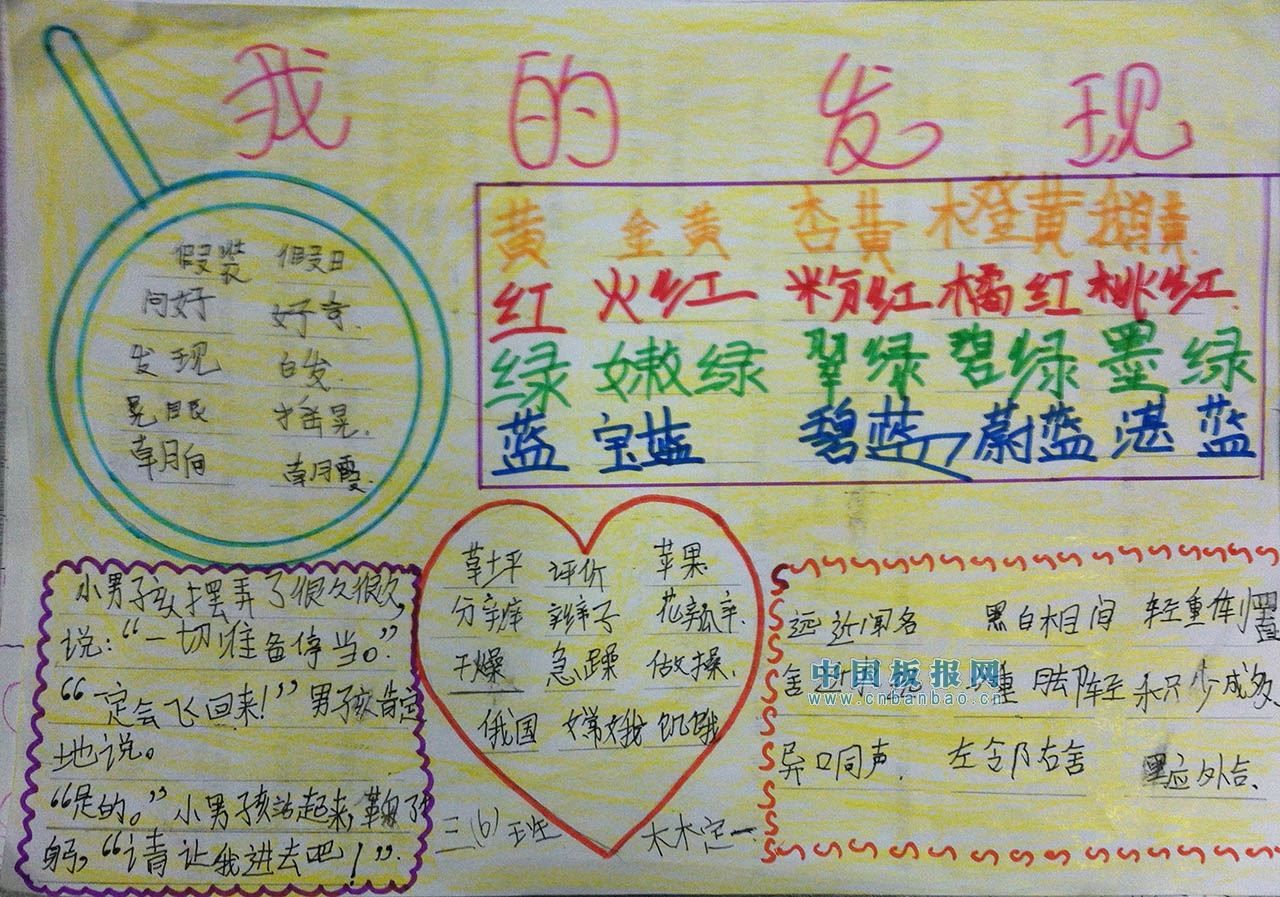 我的发现
假装 假日
问好 好奇.
发现 白发.
晃眼 摇晃.
朝向 朝霞.
黄 金黄 杏黄 橙黄
红 火红 粉红 橘红 桃红.
绿 嫩绿 翠绿 碧绿 墨绿
蓝 宝蓝 碧蓝 蔚蓝 湛蓝
草坪 评价 苹果
分辨 辫子 花瓣.
干燥 急躁 做操.
俄国 嫦娥 饥饿
小男孩摆弄了很久很久,
说:“一切准备停当。”
“一定会飞回来!”男孩肯定
地说。
“是的。”小男孩站起来,鞠了
躬,“请让我进去吧!”.
远近闻名 黑白相间 轻重倒置
中国板报网
www.cnbanbao.cn
积少成多
异口同声. 左邻右舍 里应外合.
三(6)班